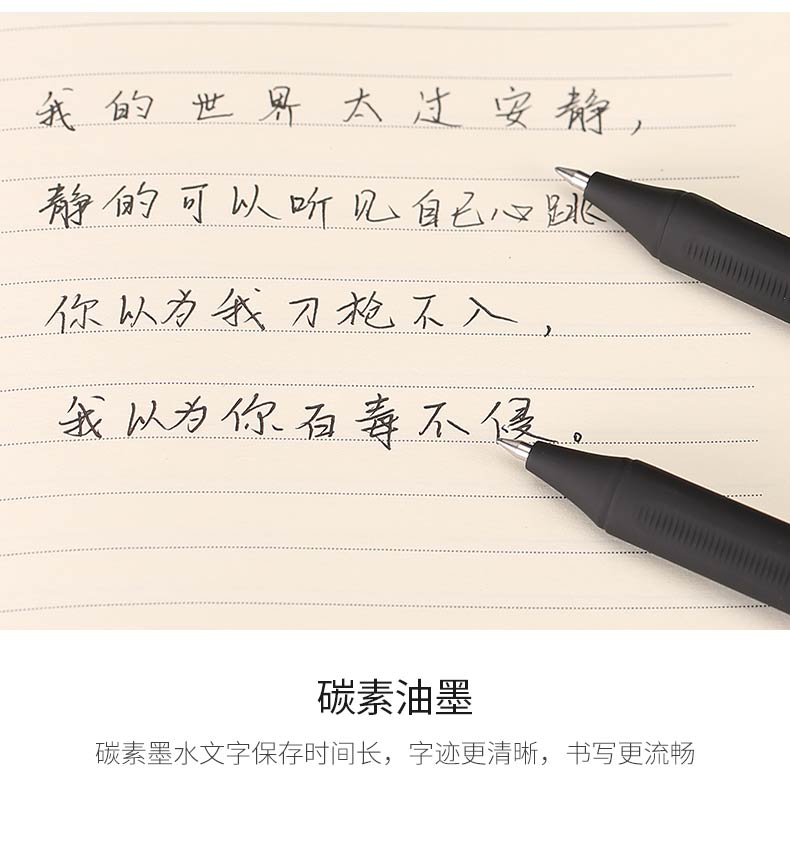 我的世界太过安静,
静的可以听见自己心跳
你以为我刀枪不入,
我以为你百毒不侵。
碳素油墨
碳素墨水文字保存时间长，字迹更清晰，书写更流畅